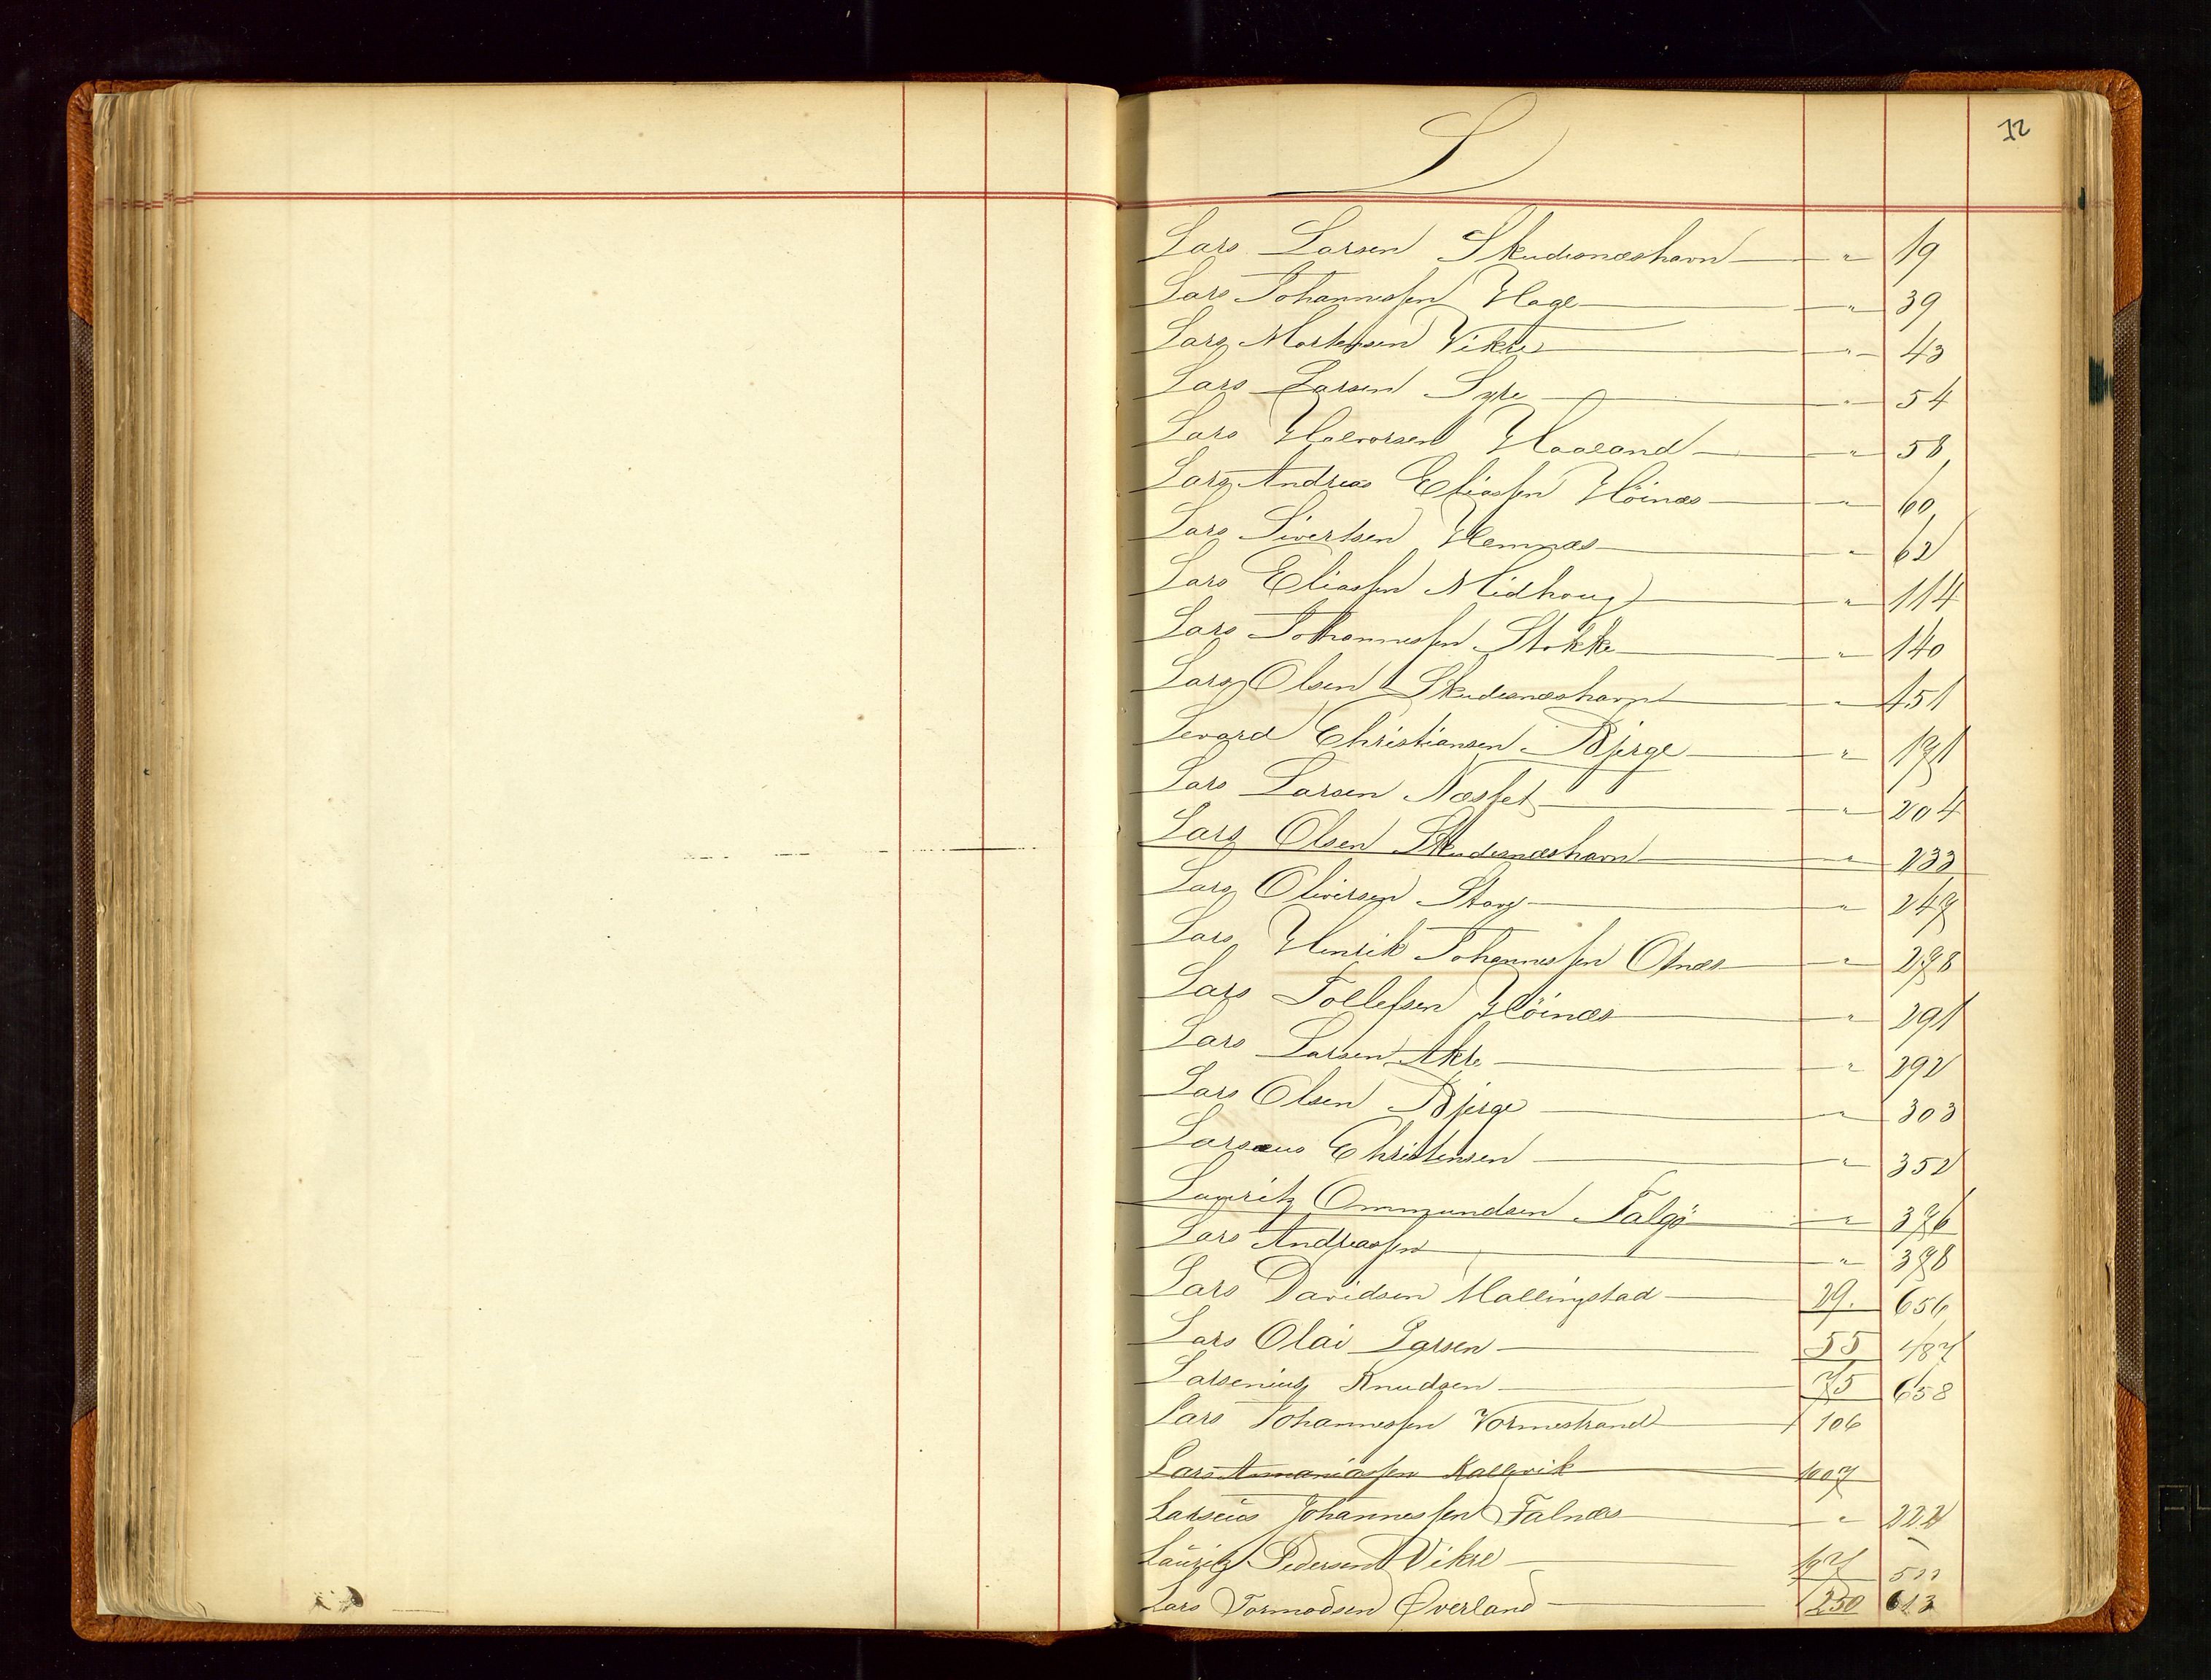 12
L
Lars Larsen Skudesnæshavn " 19
Lars Johannessen Hage " 39
Lars Mortensen Vikre " 43
Lars Larsen Syre " 54
Lars Halvorsen Haaland " 58
Lars Andreas Eliassen Höinæs " 60
Lars Sivertsen Hemnæs " 62
Lars Eliassen Midhoug " 114
Lars Johannessen Stokke " 140
Lars Olsen Skudesnæshavn " 151
Sevard Christiansen Bjerge " 171
Lars Larsen Næsset " 204
Lars Olsen Skudesnæshavn " 233
Lars Oliversen Stang " 247
Lars Henrik Johannessen Otnæs " 278
Lars Tollefsen Höinæs " 291
Lars Larsen Akre " 292
Lars Olsen Bjerge " 303
Larsæus Christensen " 352
Lauritz Ommundsen Falgö " 376
Lars Andreassen " 378
Lars Davidsen Mallingstad 29. 656
Lars Olai Larsen 55 487
Larsenius Knudsen 75 658
Lars Johannessen Vormestrand 106
Lars Ananiassen Kallevik 107
Larseus Johannessen Falnæs " 222
Lauritz Pedersen Vikre 197 522
Lars Tormodsen Øverland 250 613